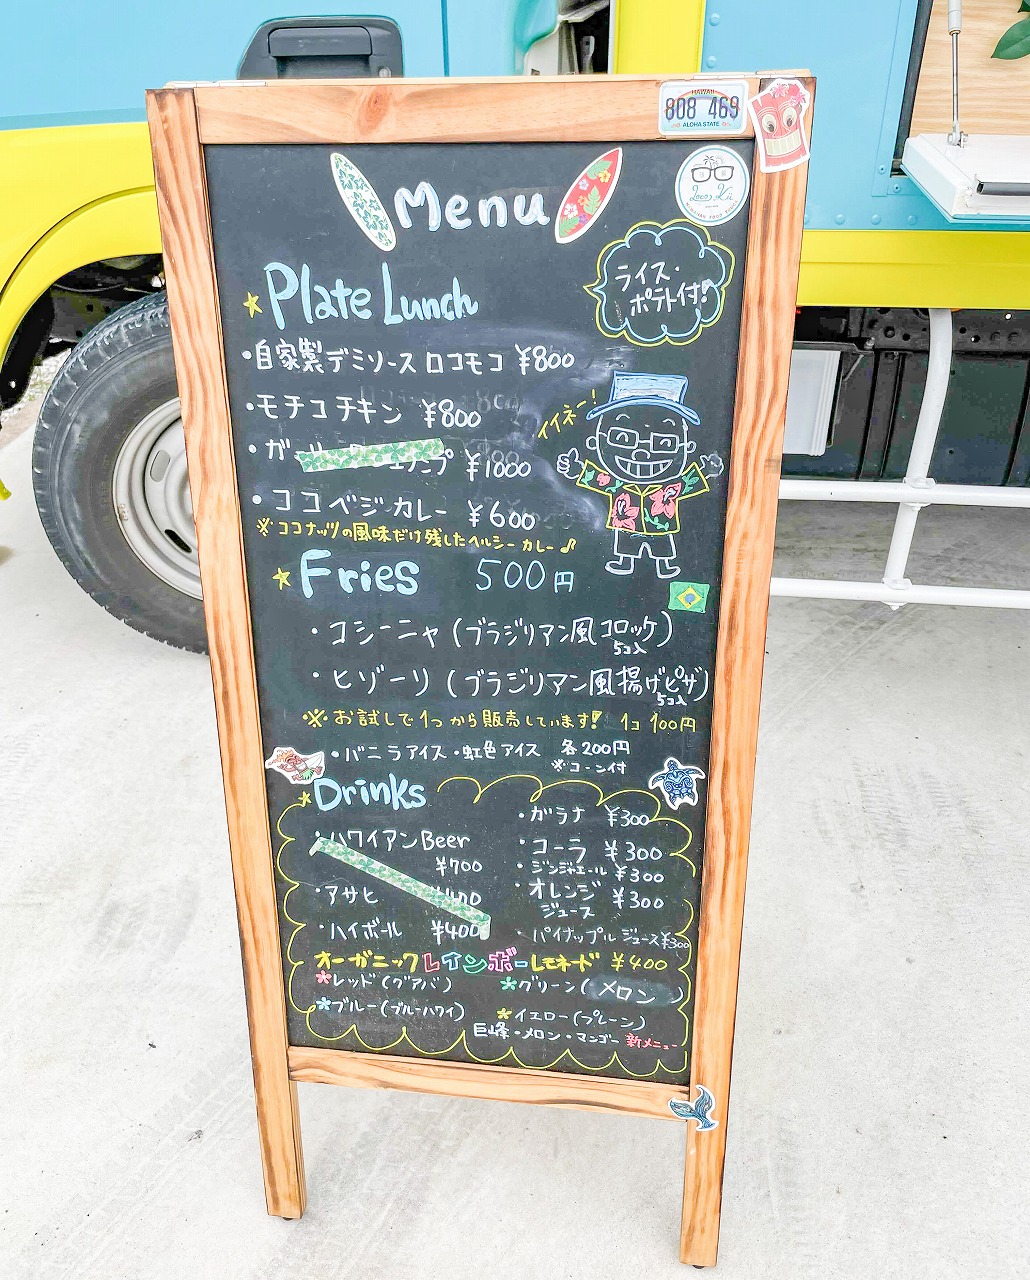 HAWAII
808 469
ALOHA STATE
Menu
Plate Lunch
ライス・
ポテト付!
・自家製デミソースロコモコ ¥800
・モチコチキン ¥800
イイネー!
・ガー ¥1000
・ココベジカレー ¥600
※ココナッツの風味だけ残したヘルシーカレー♪
Fries 500円
・コシーニャ(ブラジリアン風コロッケ)
5コ入
・ヒゾーリ(ブラジリアン風揚げピザ)
5コ入
※お試しで1つから販売しています! 1コ100円
・バニラアイス・虹色アイス 各200円
※コーン付
Drinks
・ハワイアンBeer
¥700
・アサヒ
・ハイボール ¥400
・ガラナ ¥300
・コーラ ¥300
・ジンジャエール ¥300
・オレンジ ¥300
ジュース
・パイナップルジュース¥300
オーガニックレインボーレモネード ¥400
*レッド(グアバ) *グリーン(メロン)
*ブルー(ブルーハワイ) *イエロー(プレーン)
巨峰・メロン・マンゴー 新メニュー